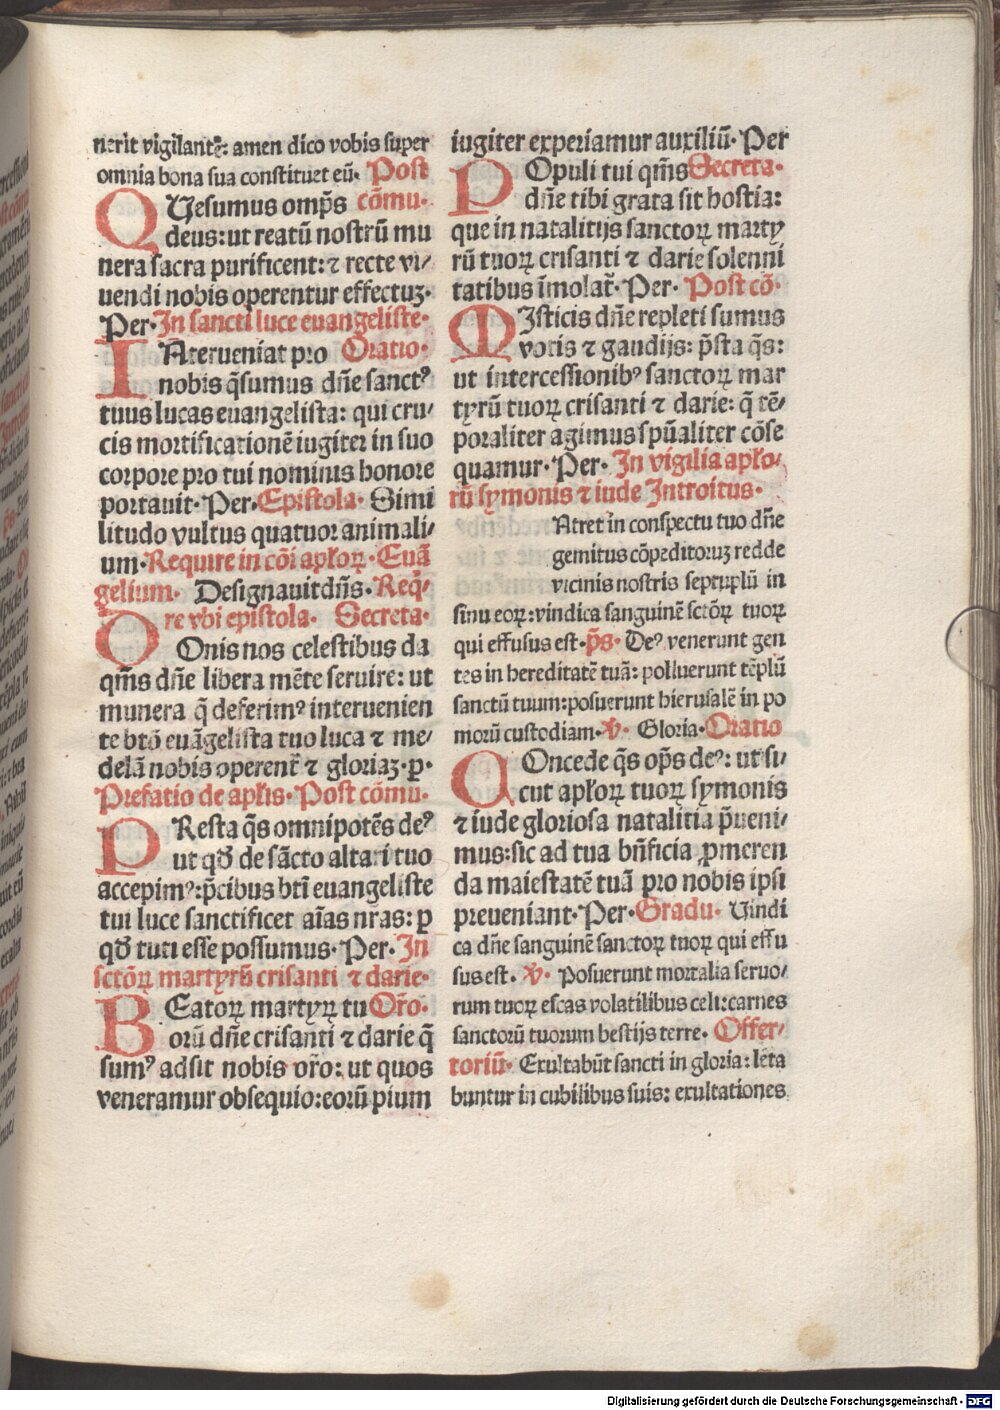 nerit vigilantē: amen dico vobis super
omnia bona sua constituet eū. Post
QUesumus omp̄s cōmu.
deus: ut reatū nostrū mu
nera sacra purificent: ⁊ recte vi/
uendi nobis operentur effectuꝫ.
Per. In sancti luce euangeliste.
INterueniat pro Oratio.
nobis q̄sumus dn̄e sanctꝰ
tuus lucas euangelista: qui cru/
cis mortificationē iugiter in suo
corpore pro tui nominis honore
portauit. Per. Epistola. Simi
litudo vultus quatuor animali/
um. Require in cōi apl'oꝝ. Euā
gelium. Designauit dn̄s. Req̄/
re vbi epistola. Secreta.
DOnis nos celestibus da
qm̄s dn̄e libera mēte seruire: ut
munera q̄ deferimꝰ interuenien
te btō euāgelista tuo luca ⁊ me/
delā nobis operent̄ ⁊ gloriaꝫ. p.
Prefatio de apl'is. Post cōmu.
PResta q̄s omnipotēs deꝰ
ut qd̄ de sācto altari tuo
accepimꝰ: p̄cibus bt̄i euangeliste
tui luce sanctificet aīas nr̄as: ꝑ
qd̄ tuti esse possumus. Per. In
sctōꝝ martyrū crisanti ⁊ darie.
BEatoꝝ martyꝝ tu Or̄o.
orū dn̄e crisanti ⁊ darie q̄
sumꝰ adsit nobis or̄o: ut quos
veneramur obsequio: eorū pium
iugiter experiamur auxiliū. Per
POpuli tui qm̄s Secreta.
dn̄e tibi grata sit hostia:
que in natalitijs sanctoꝝ marty
rū tuoꝝ crisanti ⁊ darie solenni
tatibus īmolat̄. Per. Post cō.
MIsticis dn̄e repleti sumus
votis ⁊ gaudijs: p̄sta q̄s:
ut intercessionibꝰ sanctoꝝ mar
tyrū tuoꝝ crisanti ⁊ darie: q̄ tē/
poraliter agimus sp̄ualiter cōse
quamur. Per. In vigilia apl'o/
rū symonis ⁊ iude Introitus.
Atret in conspectu tuo dn̄e
gemitus cōpeditoruꝫ redde
vicinis nostris septuplū in
sinu eoꝝ: vindica sanguinē sctōꝝ tuoꝝ
qui effusus est. p̄s. Deꝰ venerunt gen
tes in hereditatē tuā: polluerunt tēplū
sanctū tuum: posuerunt hierusalē in po
morū custodiam. ℣. Gloria. Oratio
COncede q̄s op̄s deꝰ: ut si/
cut apl'oꝝ tuoꝝ symonis
⁊ iude gloriosa natalitia p̄ueni/
mus: sic ad tua bn̄ficia ꝓmeren
da maiestatē tuā pro nobis ipsi
preueniant. Per. Gradu. Uindi
ca dn̄e sanguinē sanctoꝝ tuoꝝ qui effu
sus est. ℣. Posuerunt mortalia seruo/
rum tuoꝝ escas volatilibus celi: carnes
sanctorū tuorum bestijs terre. Offer/
toriū. Exultabūt sancti in gloria: leta
buntur in cubilibus suis: exultationes
Digitalisierung gefördert durch die Deutsche Forschungsgemeinschaft - DFG